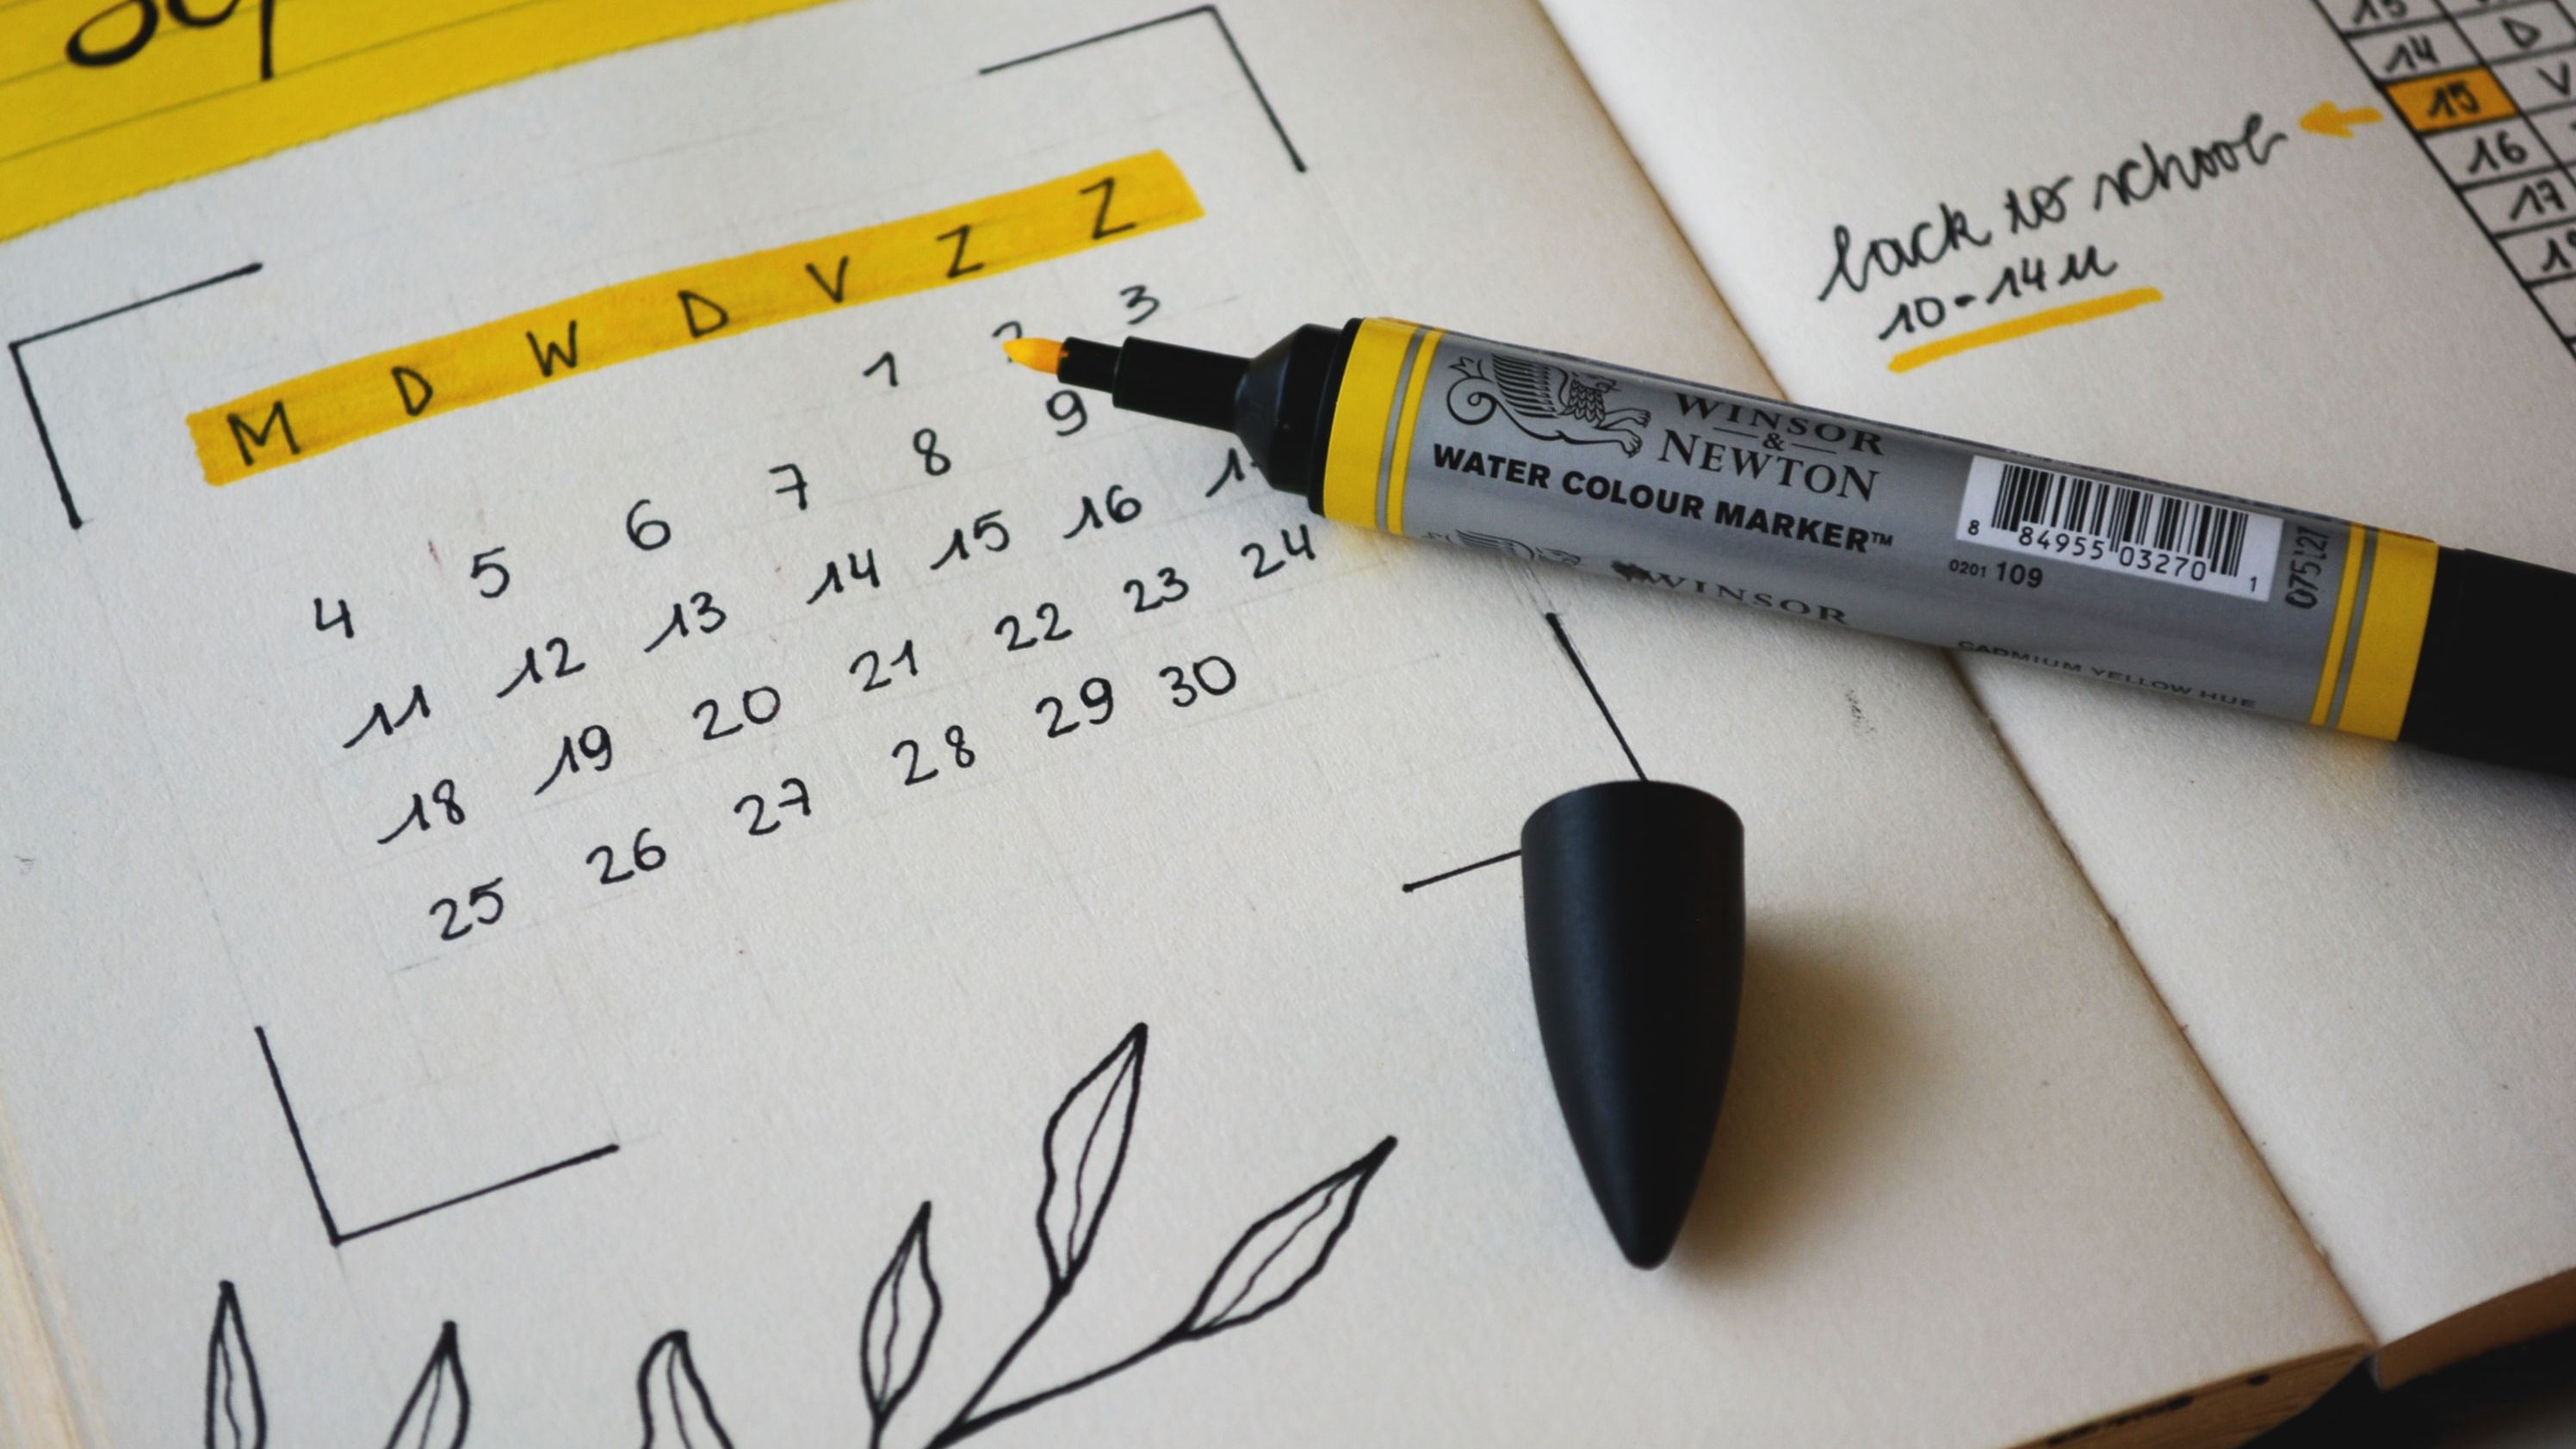 M D W D V Z Z
1 2 3
4 5 6 7 8 9
11 12 13 14 15 16
18 19 20 21 22 23 24
25 26 27 28 29 30
14 D
15 V
16
17
back to school
10-14 u
WINSOR
&
NEWTON
WATER COLOUR MARKER™
8 84955 03270 1
0201 109
075127
WINSOR
CADMIUM YELLOW HUE